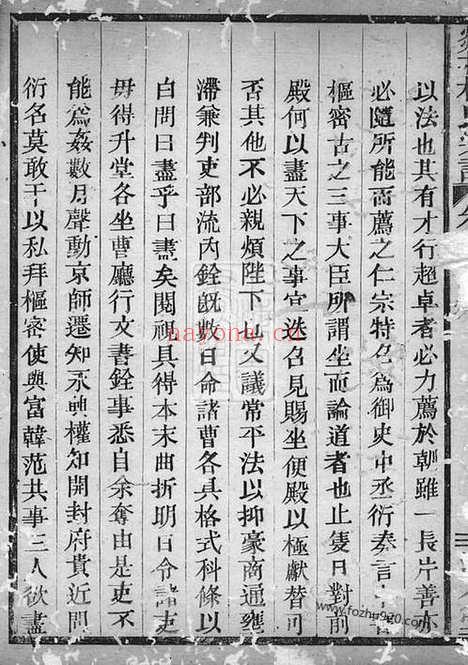 以法也其有才行超卓者必力薦於朝雖一長片善亦
必隨所能而薦之仁宗特召為御史中丞衍奏言中書
樞密古之三事大臣所謂坐而論道者也止隻日對前
殿何以盡天下之事宜迭召見賜坐便殿以極獻替可
否其他不必親煩陛下也又議常平法以抑豪商通壅
滯兼判吏部流內銓既數日命諸曹各具格式科條以
白問曰盡乎曰盡矣閱視具得本末曲折明日令諸吏
毋得升堂各坐曹廳行文書銓事悉自余奪由是吏不
能為姦數月聲動京師遷知永興權知開封府貴近聞
衍名莫敢干以私拜樞密使與富韓范共事三人欲盡
nayona.cn
www.fozhu920.com